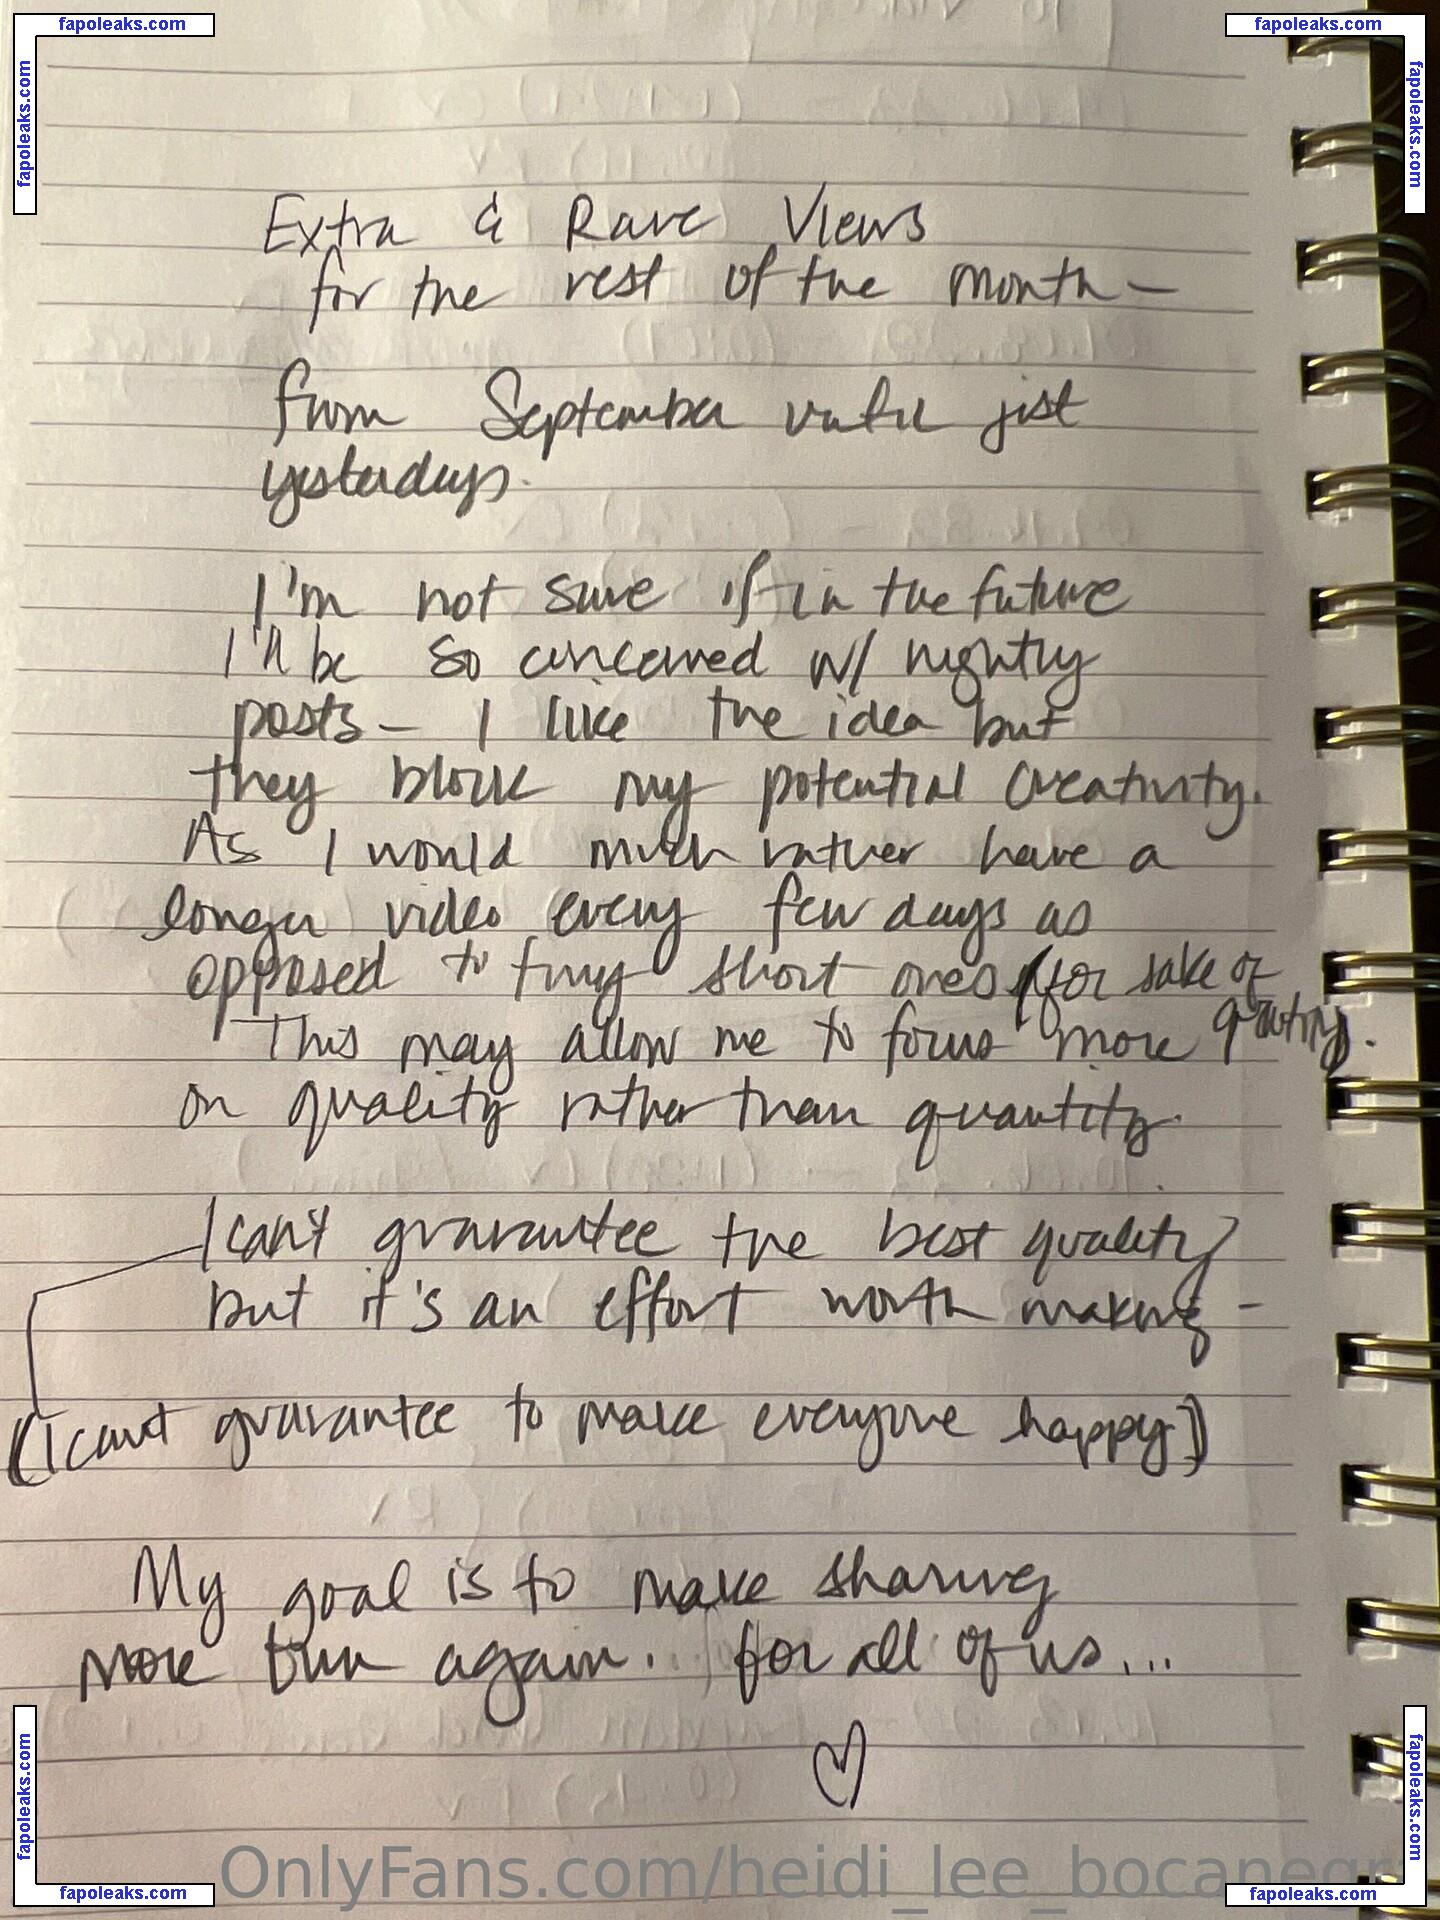 fapoleaks.com
fapoleaks.com
fapoleaks.com
fapoleaks.com
Extra & Rare Views
for the rest of the month -
from September until just
yesterday.
I'm not sure if in the future
I'll be so concerned w/ nightly
posts - I like the idea but
they block my potential creativity.
As I would much rather have a
longer video every few days as
opposed to tiny short ones (for sake of
This may allow me to focus more
on quality rather than quantity.
I can't guarantee the best quality
but it's an effort worth making -
(I can't guarantee to make everyone happy)
My goal is to make sharing
more fun again... for all of us...
fapoleaks.com
fapoleaks.com
OnlyFans.com/heidi_lee_bocanegr
fapoleaks.com
fapoleaks.com